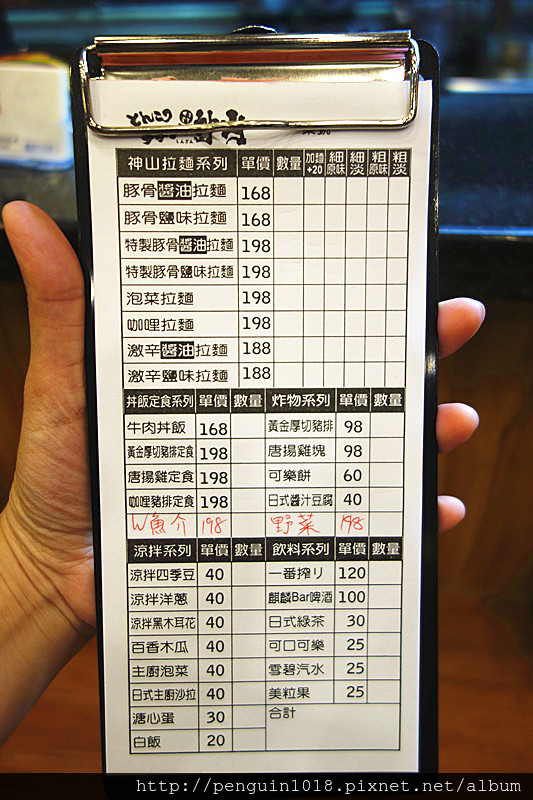 とんこつ
神山拉麵系列 單價 數量 加麵+20 細原味 細淡 粗原味 粗淡
豚骨醬油拉麵 168
豚骨鹽味拉麵 168
特製豚骨醬油拉麵 198
特製豚骨鹽味拉麵 198
泡菜拉麵 198
咖哩拉麵 198
激辛醬油拉麵 188
激辛鹽味拉麵 188
丼飯定食系列 單價 數量 炸物系列 單價 數量
牛肉丼飯 168 黃金厚切豬排 98
黃金厚切豬排定食 198 唐揚雞塊 98
唐揚雞定食 198 可樂餅 60
咖哩豬排定食 198 日式醬汁豆腐 40
W魚介 198 野菜 198
涼拌系列 單價 數量 飲料系列 單價 數量
涼拌四季豆 40 一番搾り 120
涼拌洋蔥 40 麒麟Bar啤酒 100
涼拌黑木耳花 40 日式綠茶 30
百香木瓜 40 可口可樂 25
主廚泡菜 40 雪碧汽水 25
日式主廚沙拉 40 美粒果 25
溏心蛋 30 合計
白飯 20
http://penguin1018.pixnet.net/album